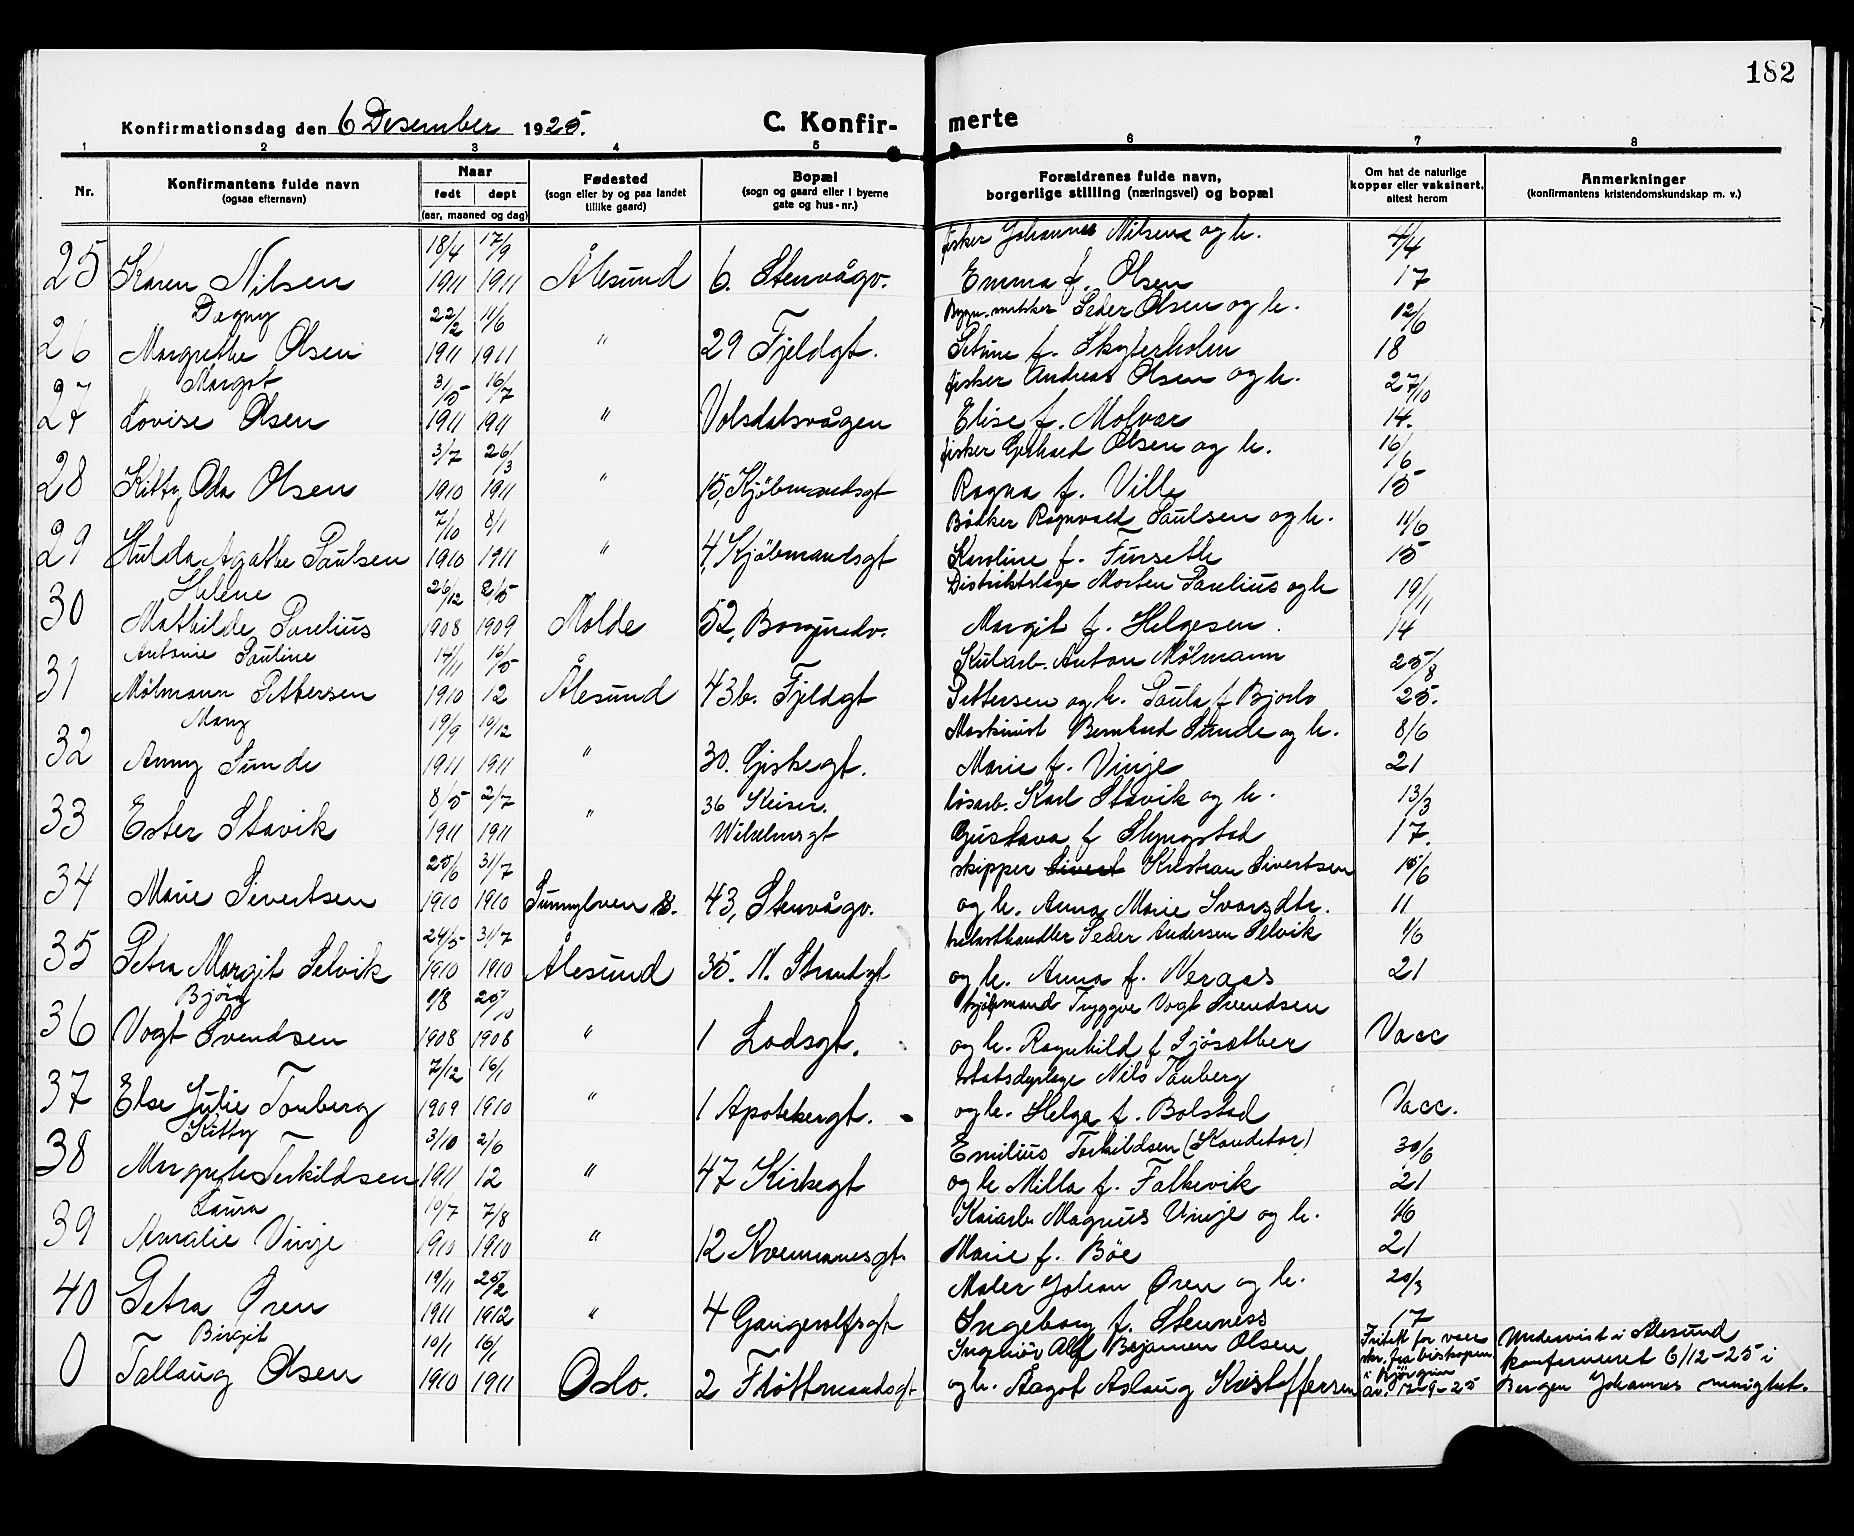 182
Konfirmationsdag den 6 Desember 1925. C. Konfir- merte
1 2 3 4 5 6 7 8
Nr. Konfirmantens fulde navn (ogsaa efternavn) Naar født døpt (aar, maaned og dag) Fødested (sogn eller by og paa landet tillike gaard) Bopæl (sogn og gaard eller i byerne gate og hus-nr.) Forældrenes fulde navn, borgerlige stilling (næringsvei) og bopæl Om hat de naturlige kopper eller vaksinert, attest herom Anmerkninger (konfirmantens kristendomskundskap m. v.)
18/4 17/9 fisker Johannes Nilsen og h. 4/4
25 Karen Nilsen 1911 1911 Ålesund 6. Stenvågv. Emma f. Olsen 17
Dagny 22/2 11/6 Peder Olsen og h. 12/6
26 Margrethe Olsen 1911 1911 " 29 Fjeldgt. Petrine f. Skyterholm 18
Margot 31/5 16/7 fisker Andreas Olsen og h. 27/10
27 Lovise Olsen 1911 1911 " Volsdalsvågen Elise f. Molvær 14.
3/7 26/3 fisker Gerhard Olsen og h. 16/6
28 Kitty Oda Olsen 1910 1911 " 15, Kjöbmandsgt Ragna f. Ville 15
7/10 8/1 Bödker Ragnvald Paulsen og h. 11/6
29 Hulda Agathe Paulsen 1910 1911 " 4, Kjöbmandsgt Karoline f. Furseth 15
Helene 26/12 2/5 Distriktslæge Morten Parelius og h 19/11
30 Mathilde Parelius 1908 1909 Molde 52, Borgundv. Margit f. Helgesen. 14
Antonie Pauline 14/11 16/5 Kularb. Anton Mølmann 25/8
31 Mølmann Pettersen 1910 12 Ålesund 43b. Fjeldgt Pettersen og h. Paula f Bjorlo 25.
Mary 19/9 19/12 Maskinist Bernhard Sunde og h. 8/6
32 Anny Sunde 1911 1911 " 30. Giskegt. Marie f. Vinje 21
8/5 2/7 36 Keiser. løsarb. Karl Stavik og h. 13/3
33 Ester Stavik 1911 1911 " Wilhelmsgt Gustava f 17.
25/6 31/7 skipper Sivert Kristian Sivertsen 15/6
34 Marie Sivertsen 1910 1910 Sunnylven s. 43, Stenvågv. og h. Anna Marie Ivarsdtr. 11
24/5 31/7 trelasthandler Peder Andersen Selvik 1/6
35 Petra Margit Selvik 1910 1910 Ålesund 35. N. Strandgt og h. Anna f. Neraas 21
Bjørg 9/8 25/10 kjöbmand Tryggve Vogt Svendsen
36 Vogt Svendsen 1908 1908 " 1 Lodsgt. og h. Ragnhild f Sjösæther Vacc
7/12 16/1 Nils Tonberg
37 Else Julie Tonberg 1909 1910 " 1 Apotekergt. og h. Helga f. Bolstad Vacc.
Kitty 3/10 2/6 Emilius Torkildsen (Konditor) 30/6
38 Margrete Torkildsen 1911 12 " 47 Kirkegt og h Milla f. Falkevik 21
Laura 19/7 7/8 Kaiarb. Magnus Vinje og h. 1/6
39 Amalie Vinje 1910 1910 " 12 Kvennanesgt. Marie f. Böe 21
19/11 25/2 Maler Johan Øren og h. 20/3
40 Petra Øren 1911 1912 " 4 Gangerolfsgt Ingeborg f. Stenness 17
Birgit 10/1 16/1 Ingeniör Alf Bejamen Olsen Fritatt for vacc skr. fra biskopen i Björgvin av. 12-9-25 Undervist i Ålesund
0 Tallaug Olsen 1910 1911 Oslo. 2 Flöttmandsgt og h. Aagot Aslaug Kristoffersen konfirmeret 6/12-25 i
Bergen Johannes menighet.